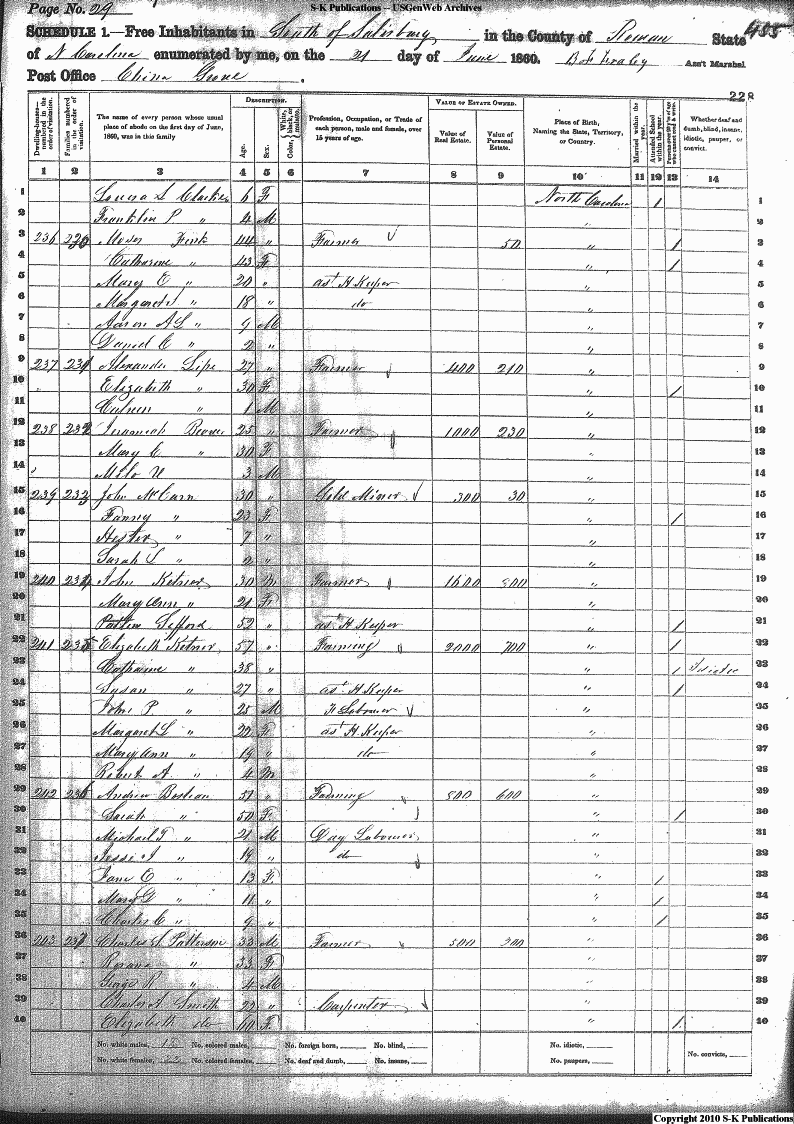 Page No. 29
S-K Publications – USGenWeb Archives
485
SCHEDULE 1.—Free Inhabitants in South of Salisbury in the County of Rowan State
of N Carolina enumerated by me, on the 21 day of June 1860. Ass't Marshal.
Post Office China Grove.
228
Dwelling-houses—numbered in the order of visitation.
Families numbered in the order of visitation.
The name of every person whose usual place of abode on the first day of June, 1860, was in this family
DESCRIPTION.
Age.
Sex.
Color, White, black, or mulatto.
Profession, Occupation, or Trade of each person, male and female, over 15 years of age.
VALUE OF ESTATE OWNED.
Value of Real Estate.
Value of Personal Estate.
Place of Birth, Naming the State, Territory, or Country.
Married within the year.
Attended School within the year.
Whether deaf and dumb, blind, insane, idiotic, pauper, or convict.
1 2 3 4 5 6 7 8 9 10 11 12 13 14
1 Louisa L 6 F North Carolina / 1
2 Franklin P " 4 M " 2
3 236 Moses Fink 44 " Farmer 50 " / 3
4 Catharine " 43 F " / 4
5 Mary E " 20 " ast H Keeper " 5
6 Margaret " 18 " do " 6
7 Aaron A L " 9 M " 7
8 Daniel C " 2 " " 8
9 237 231 Alexander Lipe 27 " Farmer 400 210 " 9
10 Elizabeth " 30 F " / 10
11 " 1 M " 11
12 238 232 Jeramiah 25 " Farmer 1000 230 " 12
13 Mary C " 30 F " 13
14 Milo 3 M " 14
15 239 233 John 30 " Gold Miner 300 30 " 15
16 Fanny " 23 F " / 16
17 Hester " 7 " " 17
18 Sarah L " 2 " " 18
19 240 234 John Ketner 30 M Farmer 1600 " 19
20 Mary Ann " 21 F " 20
21 52 " ast H Keeper " / 21
22 241 235 Elizabeth Ketner 57 " Farming 2000 700 " / 22
23 Catharine " 38 " " / Idiotic 23
24 Susan " 27 " ast H Keeper " / 24
25 John P " 25 M F Labourer " 25
26 Margaret L " 22 F ast H Keeper " 26
27 Mary Ann " 19 " do " 27
28 Robert A. " 4 M " 28
29 242 236 Andrew Bostian 51 " Farming 800 600 " 29
30 Sarah " 50 F " / 30
31 Michael " 21 M Day Labourer " 31
32 Jesse " 19 " do " 32
33 Jane E " 13 F " / 33
34 Mary " 11 " " / 34
35 Charles C " 9 " " / 35
36 243 237 Charles Patterson 33 M Farmer 500 300 " 36
37 " 33 F " 37
38 George R " 4 M " 38
39 Charles A Smith 22 " Carpenter " 39
40 Elizabeth do 60 F " / 40
No. white males, No. colored males, No. foreign born, No. blind, No. idiotic,
No. white females, No. colored females, No. deaf and dumb, No. insane, No. paupers, No. convicts,
Copyright 2010 S-K Publications